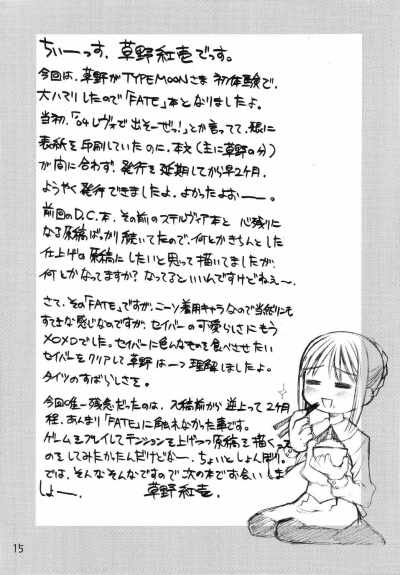 ちぃーっす、草野紅壱でっす。
今回は、草野がTYPEMOONさま初体験で、
大ハマリしたので「FATE」本となりましたよ。
当初、「04レヴォで出そーぜっ!」とか言ってて、既に
表紙を印刷していたのに、本文(主に草野の分)
が間に合わず、発行を延期してから早2ヶ月。
ようやく発行できましたよ。よかったよおー。
前回のD.C.本、その前のステルヴィア本と心残りに
なる原稿ばっかり続いてたので、何とかきちんとした
仕上げの原稿にしたいと思って描いてましたが、
何とかなってますか?なってるといいんですけどねぇ〜。
さて、その「FATE」ですが、ニーソ着用キャラなので当然にも
すてきな感じなのですが、セイバーの可愛らしさにもう
メロメロでした。セイバーに色んなものを食べさせたい
セイバーをクリアして草野は一つ理解しましたよ。
タイツのすばらしさを。
今回唯一残念だったのは、入稿前から逆上って2ヶ月
程、あんまり「FATE」に触れなかった事です。
ゲームをプレイしてテンションを上げつつ原稿を描くって
のをしてみたかったんだけどなー。ちょいとしょんぼり。
では、そんなそんなですので次の本でお会いしま
しょー。 草野紅壱.
15